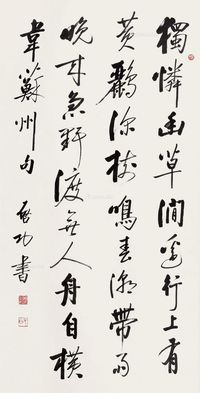 獨憐幽草澗邊行上有
黃鸝深樹鳴春潮帶雨
晚來急野渡無人舟自橫
韋蘇州句 啟功書